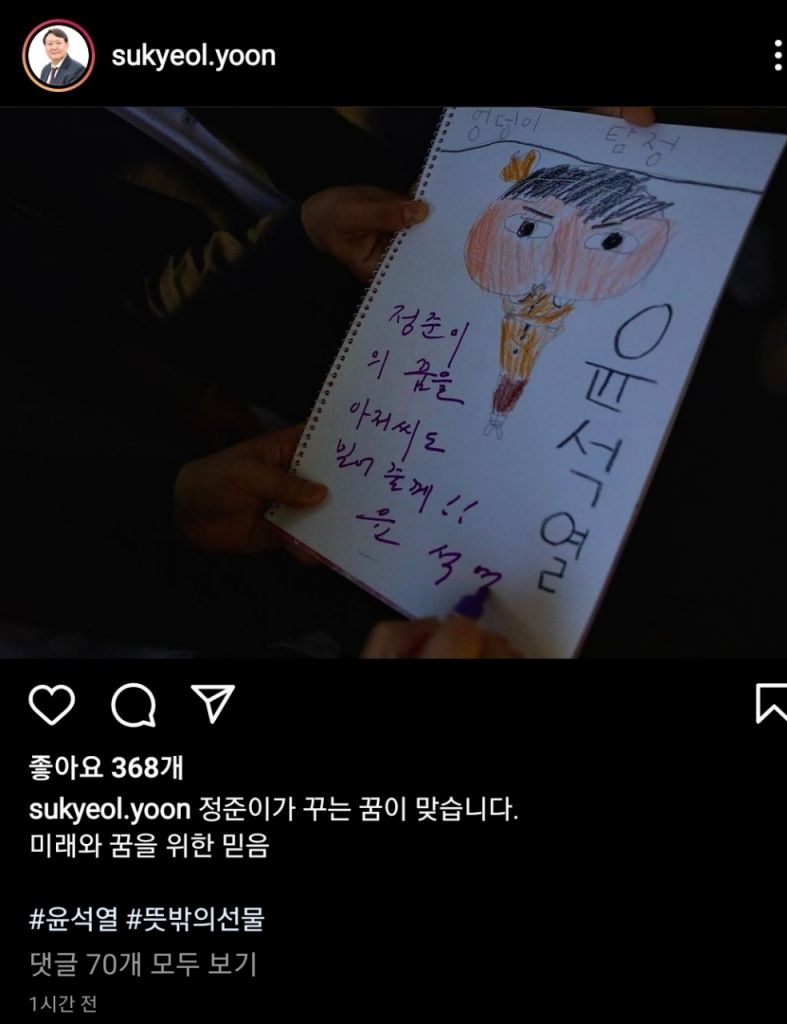 sukyeol.yoon
엉덩이 탐정
정준이
의 꿈을
아저씨도
줄께!!
윤 석
윤석열
좋아요 368개
sukyeol.yoon 정준이가 꾸는 꿈이 맞습니다.
미래와 꿈을 위한 믿음
#윤석열 #뜻밖의선물
댓글 70개 모두 보기
1시간 전